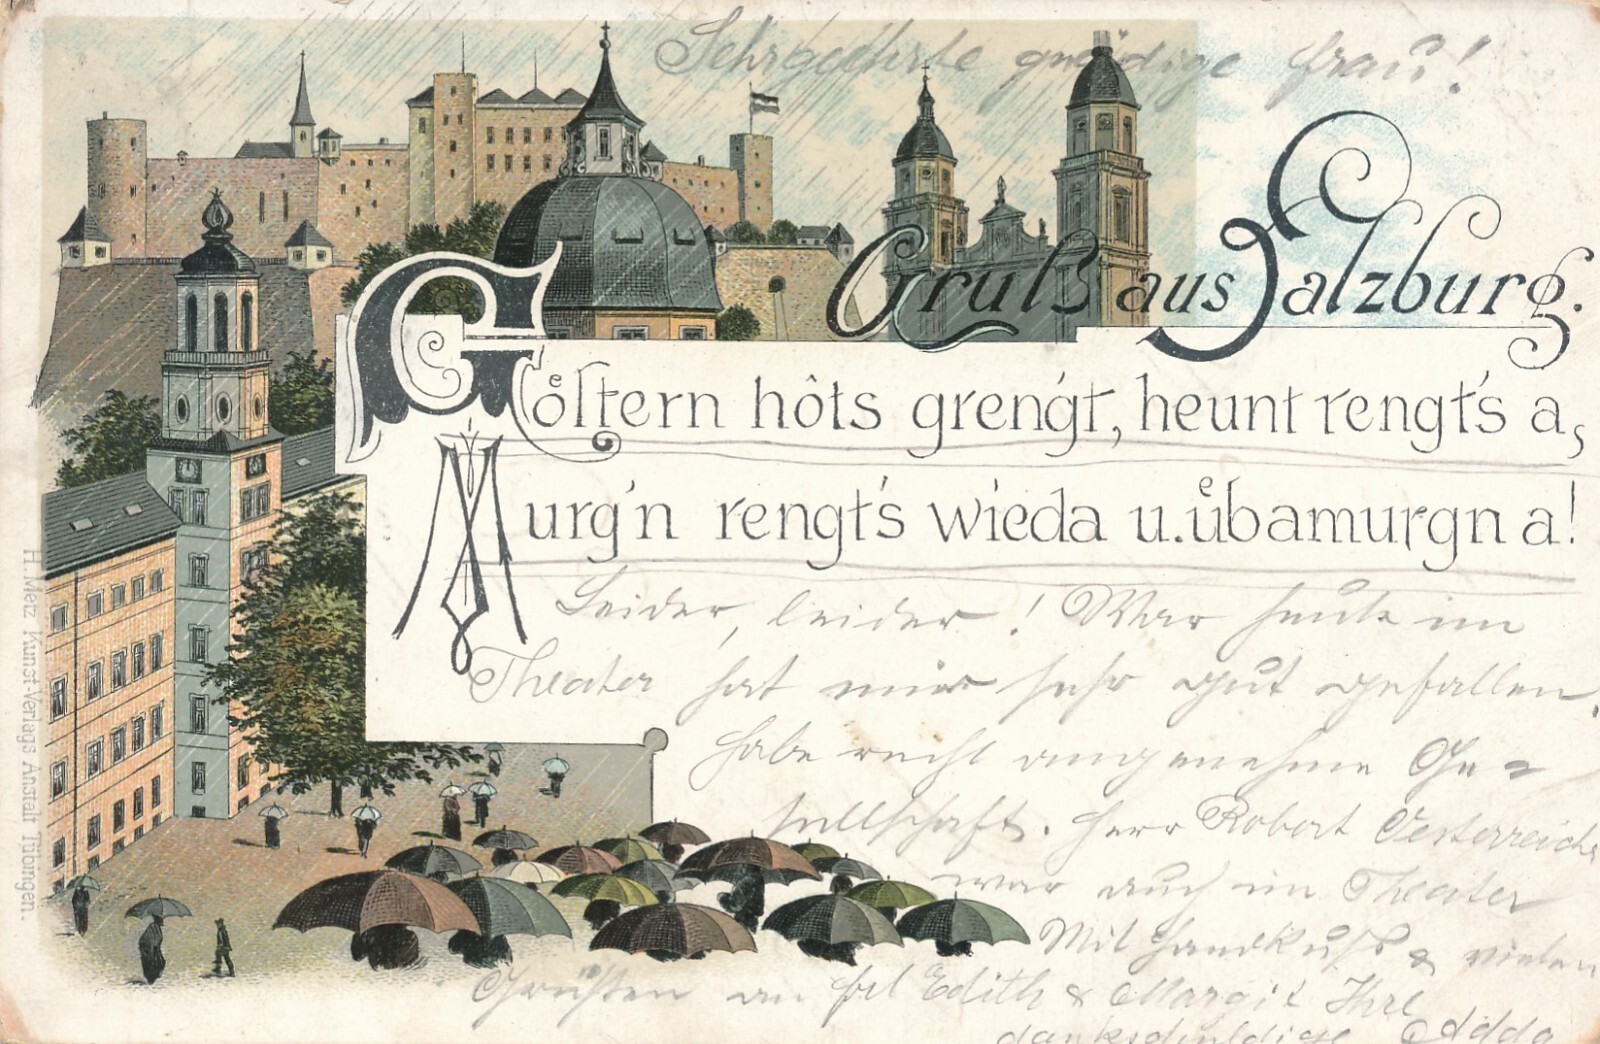 Sehrgeehrte gnädige Frau!
Gruß aus Salzburg.
Göstern hôts greng't, heunt rengt's a,
Murg'n rengt's wieda u. übamurgn a!
Leider, leider! War heute im
Theater hat mir sehr gut gefallen,
habe recht angenehme Ge=
sellschaft. Herr Robert Oesterreich
war auch im Theater
Mit Handkuß & vielen
Grüßen an Frl Edith & Margit Ihre
dankschuldige Adda
H. Metz Kunst-Verlags Anstalt Tübingen.